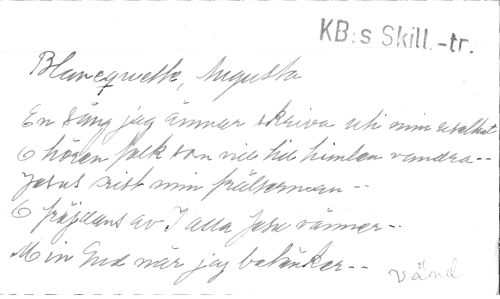 KB:s Skill.-tr.
Blancqwelk, Augusta
En sång jag ämnar skriva uti min uselhet
O hören folk som vill till himlen vandra --
Jesus visst min frälserman --
O fröjdens av I alla Jesu vänner --
Min Gud när jag betänker --
vänd